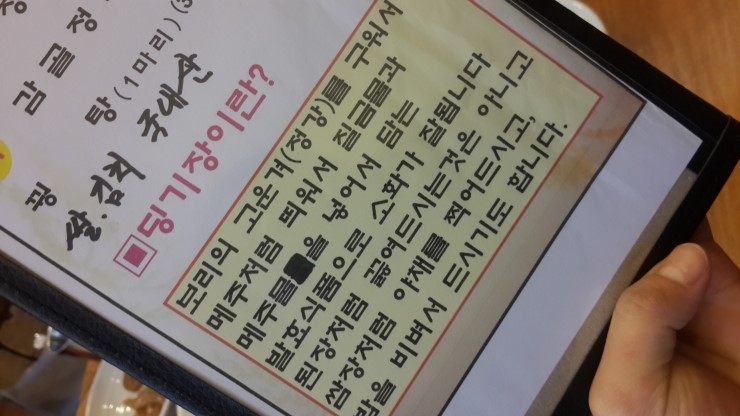 감골정
탕(1마리)(3
쌀.김치 국내산
당기장이란?
보리의 고운겨(정강)를 구워서
메주처럼 띄워서 질금물과
메주물 을 넣어서 담는
발효식품으로 소화가 잘됩니다
된장처럼 끓여드시는것은 아니고
쌈장처럼 야채를 찍어드시고,
밥을 비벼서 드시기도 합니다.